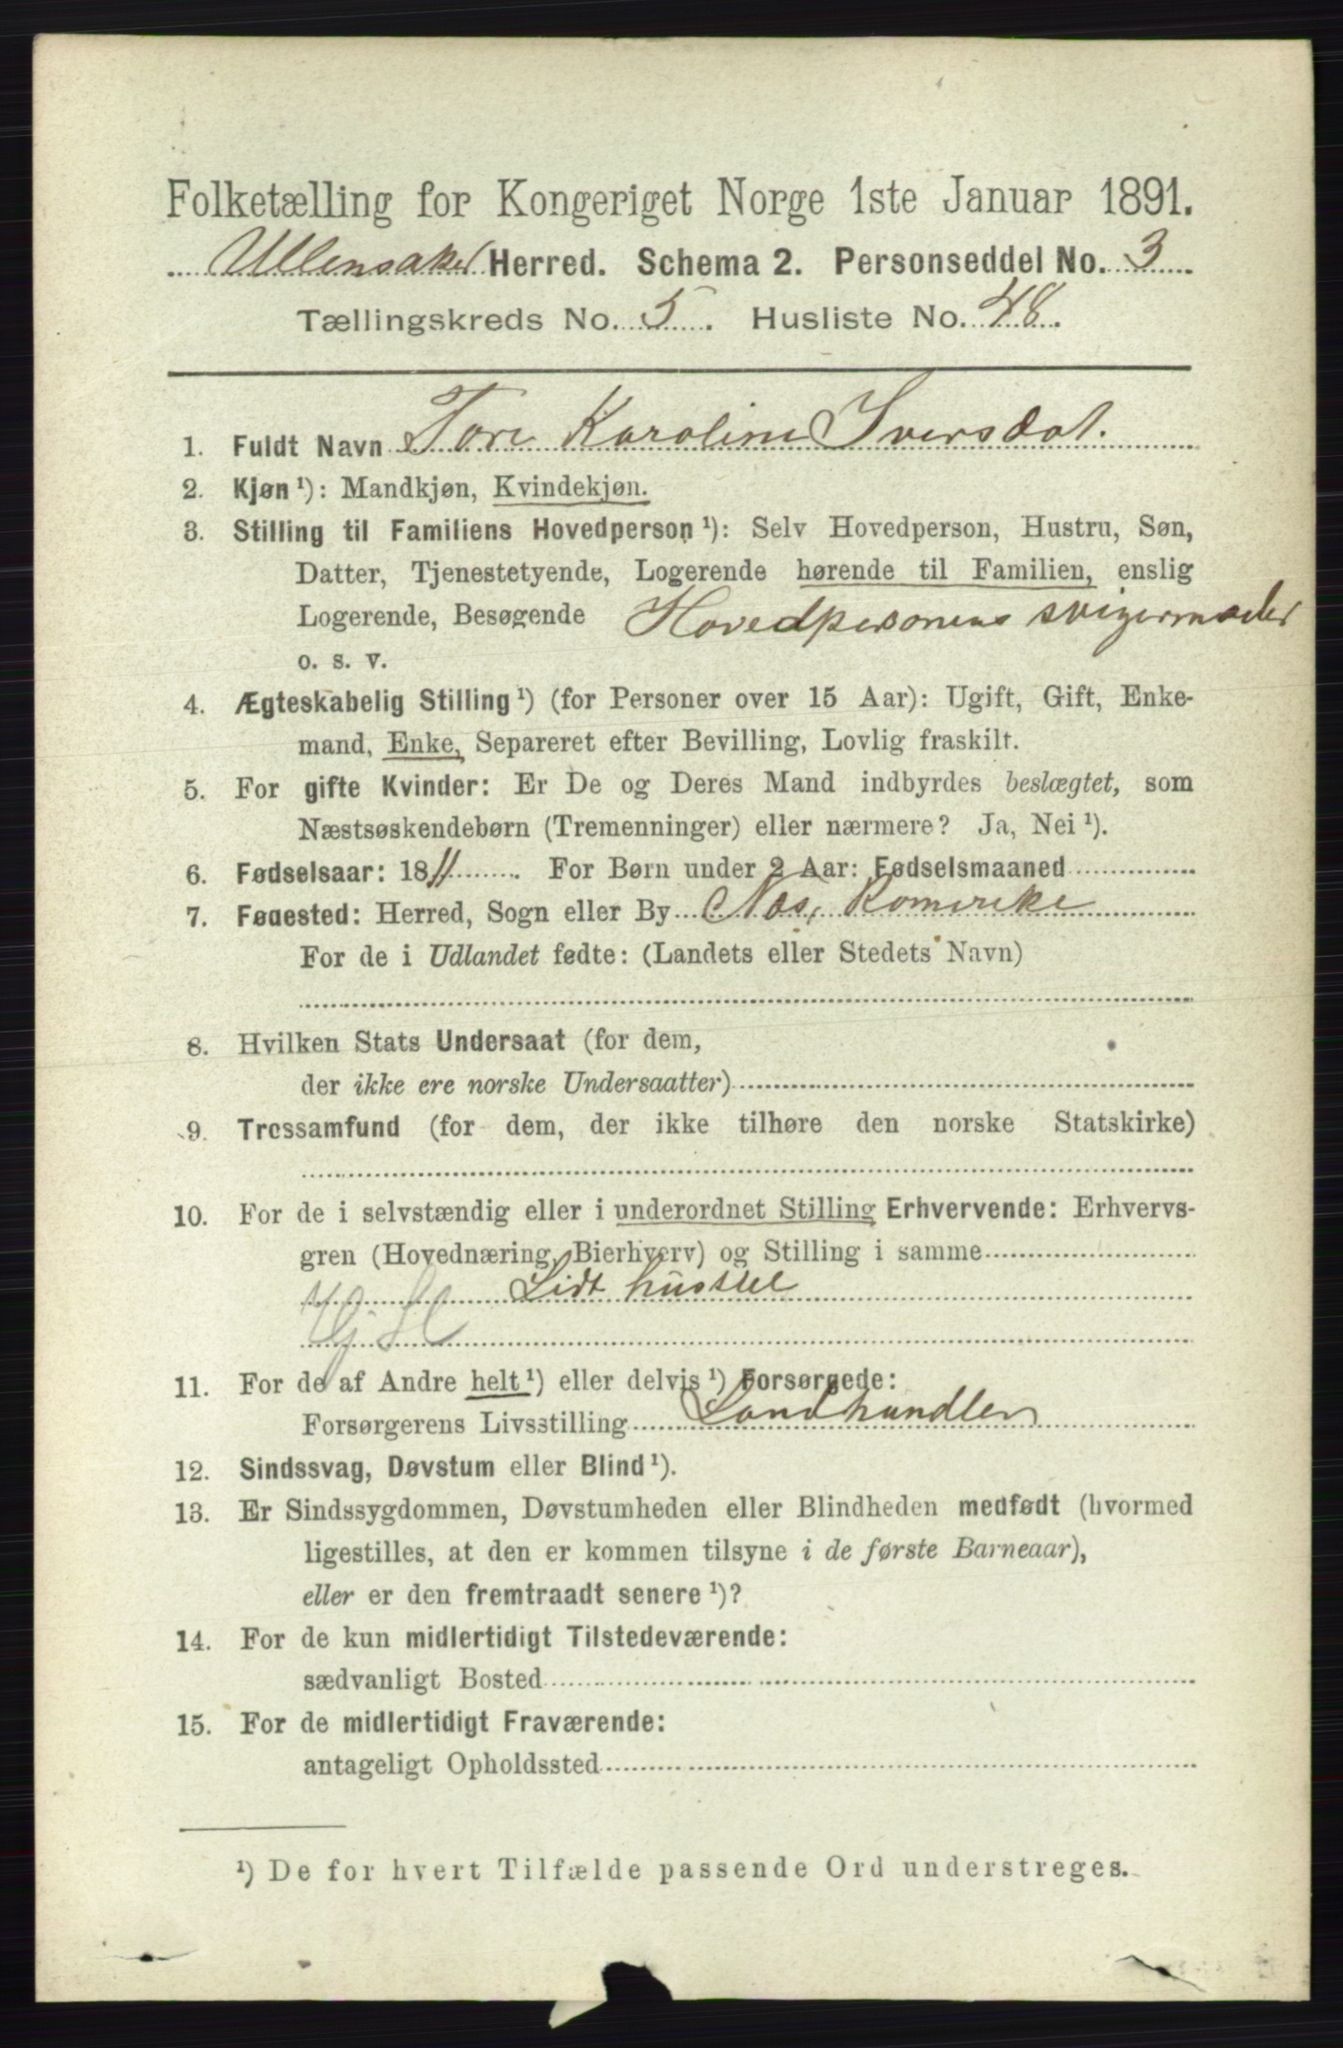 Folketælling for Kongeriget Norge 1ste Januar 1891.
Ullensaker Herred. Schema 2. Personseddel No. 3
Tællingskreds No. 5. Husliste No. 48.
1. Fuldt Navn Tore Karoline Iversdat.
2. Kjøn ¹): Mandkjøn, Kvindekjøn.
3. Stilling til Familiens Hovedperson ¹): Selv Hovedperson, Hustru, Søn,
Datter, Tjenestetyende, Logerende hørende til Familien, enslig
Logerende, Besøgende Hovedpersonens svigermoder
o. s. v.
4. Ægteskabelig Stilling ¹) (for Personer over 15 Aar): Ugift, Gift, Enke-
mand, Enke, Separeret efter Bevilling, Lovlig fraskilt.
5. For gifte Kvinder: Er De og Deres Mand indbyrdes beslægtet, som
Næstsøskendebørn (Tremenninger) eller nærmere? Ja, Nei ¹).
6. Fødselsaar: 1811. For Børn under 2 Aar: Fødselsmaaned
7. Fødested: Herred, Sogn eller By Næs, Romerike
For de i Udlandet fødte: (Landets eller Stedets Navn)
8. Hvilken Stats Undersaat (for dem,
der ikke ere norske Undersaatter)
9. Trossamfund (for dem, der ikke tilhøre den norske Statskirke)
10. For de i selvstændig eller i underordnet Stilling Erhvervende: Erhvervs-
gren (Hovednæring, Bierhverv) og Stilling i samme
Lidt husstel
11. For de af Andre helt ¹) eller delvis ¹) Forsørgede:
Forsørgerens Livsstilling Landhandler
12. Sindssvag, Døvstum eller Blind ¹).
13. Er Sindssygdommen, Døvstumheden eller Blindheden medfødt (hvormed
ligestilles, at den er kommen tilsyne i de første Barneaar),
eller er den fremtraadt senere ¹)?
14. For de kun midlertidigt Tilstedeværende:
sædvanligt Bosted
15. For de midlertidigt Fraværende:
antageligt Opholdssted
¹) De for hvert Tilfælde passende Ord understreges.